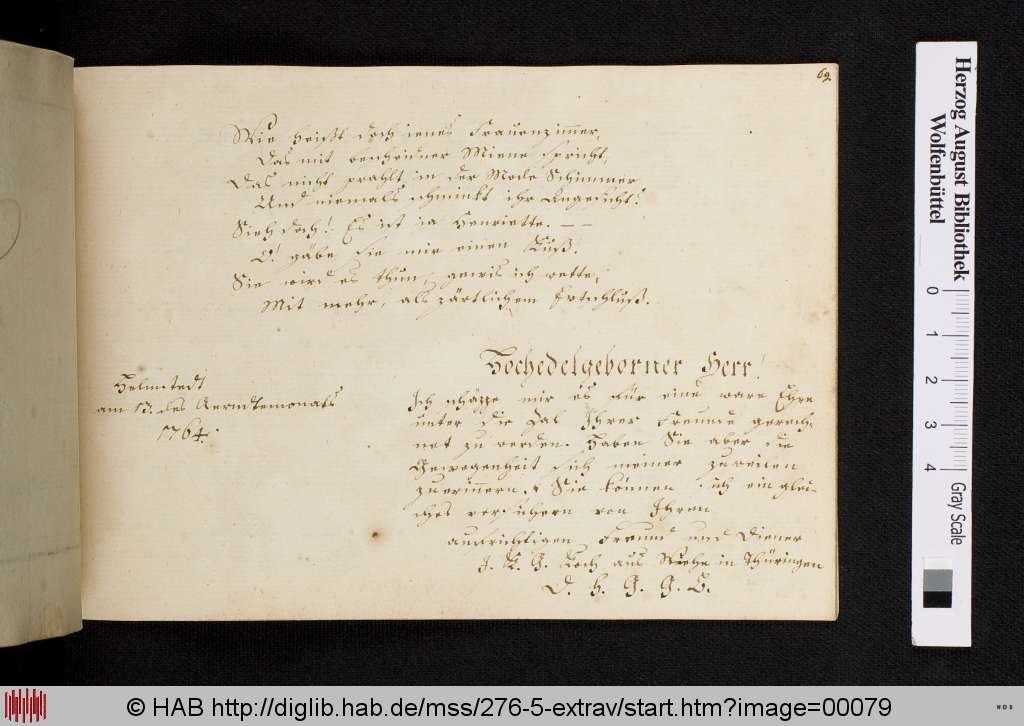 69.
Wie heißt doch ienes Frauenzimmer,
Das mit bescheidner Miene spricht,
Das nicht prahlt in der Mode Schimmer
Und niemals schminkt ihr Angesicht?
Sieh doch! Es ist ia Henriette. — —
O! gäbe sie mir einen Kuß!
Sie wird es thun, gewis ich wette,
Mit mehr, als zärtlichem Entschluß.
Helmstedt
am 13. des Aerndtemonats
1764.
Hochedelgeborner Herr!
Ich schäzze mir es für eine ware Ehre
unter die Zal Ihrer Freunde gerech-
net zu werden. Haben Sie aber die
Gewogenheit sich meiner zuweilen
zuerinnern. Sie können sich ein glei-
ches versichern von Ihrem
aufrichtigen Freund und Diener
J. K. G. Koch aus Wiehe in Thüringen
D. H. G. G. B.
Herzog August Bibliothek
Wolfenbüttel
0 1 2 3 4 Gray Scale
© HAB http://diglib.hab.de/mss/276-5-extrav/start.htm?image=00079
WDB